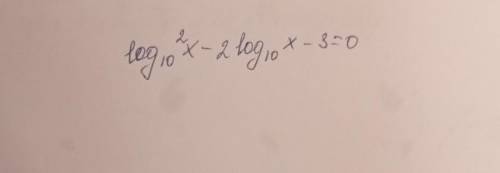 log₁₀²x - 2 log₁₀x - 3 = 0